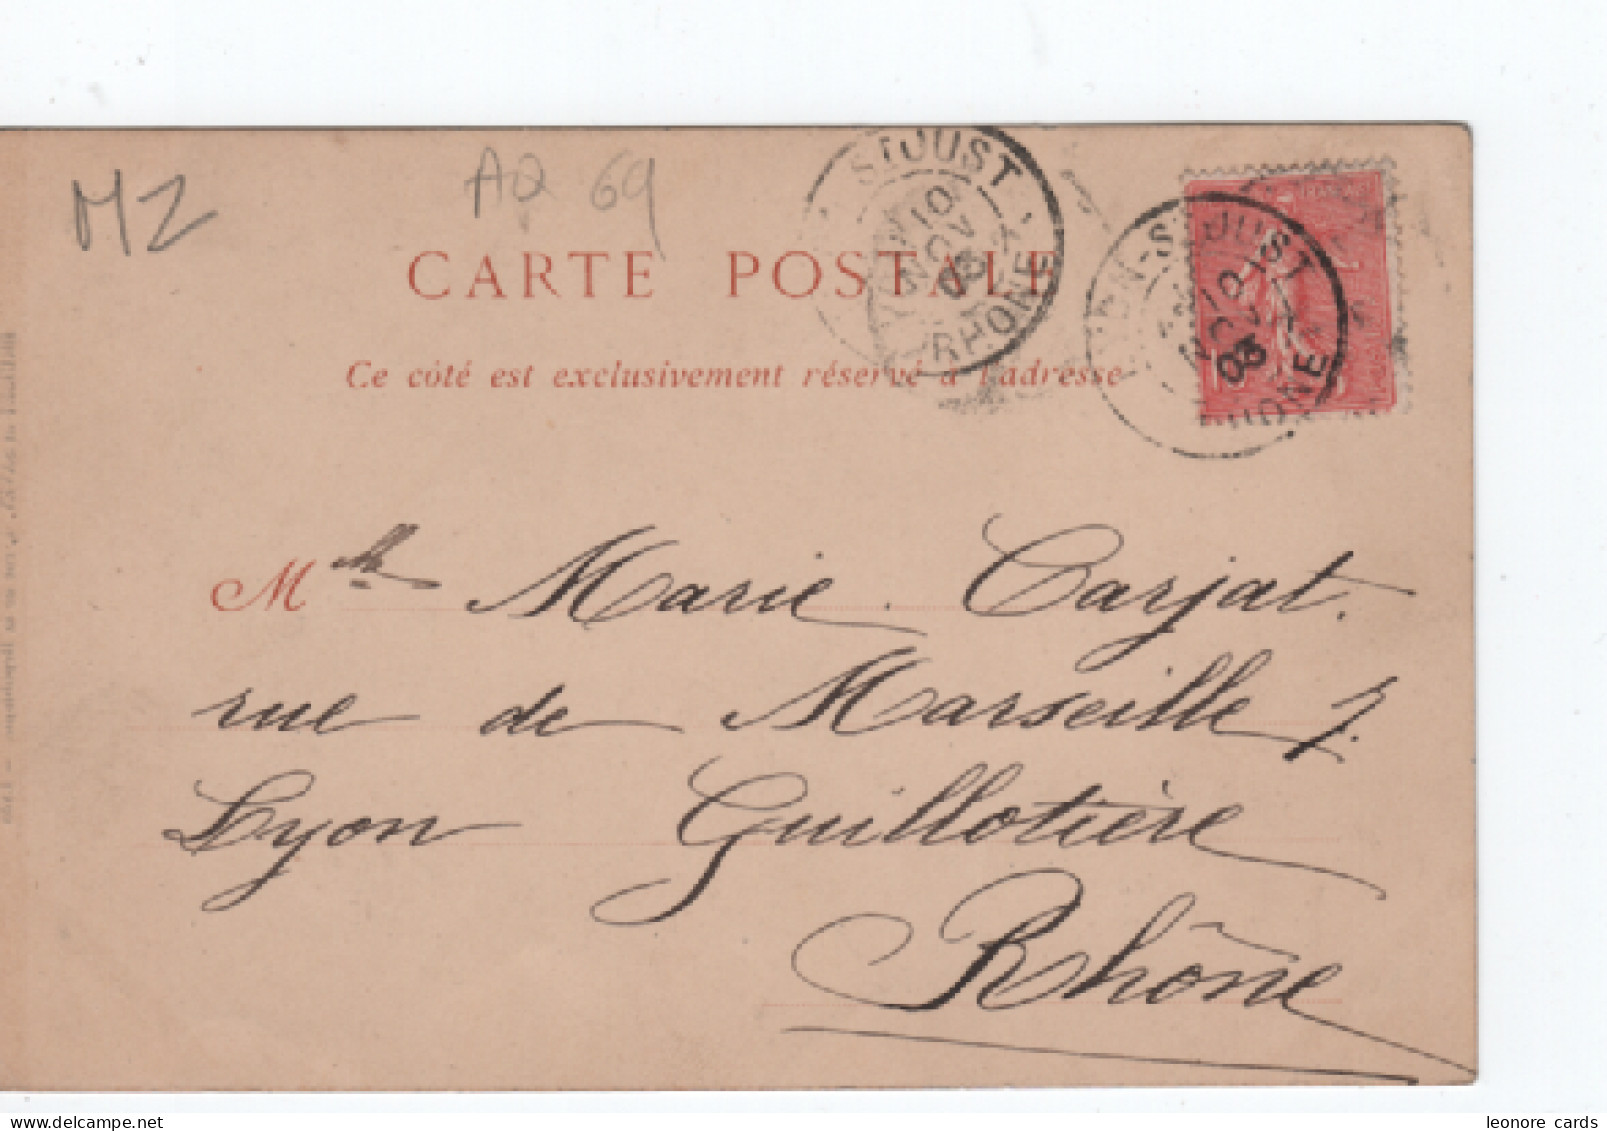 MZ
AQ 69
CARTE POSTALE
Ce côté est exclusivement réservé à l'adresse
STJUST
10
NOV
03
RHONE
LYON-ST JUST
10
NOV
03
RHONE
Mlle Marie Carjat.
rue de Marseille 7.
Lyon Guillotière
Rhône
leonore cards